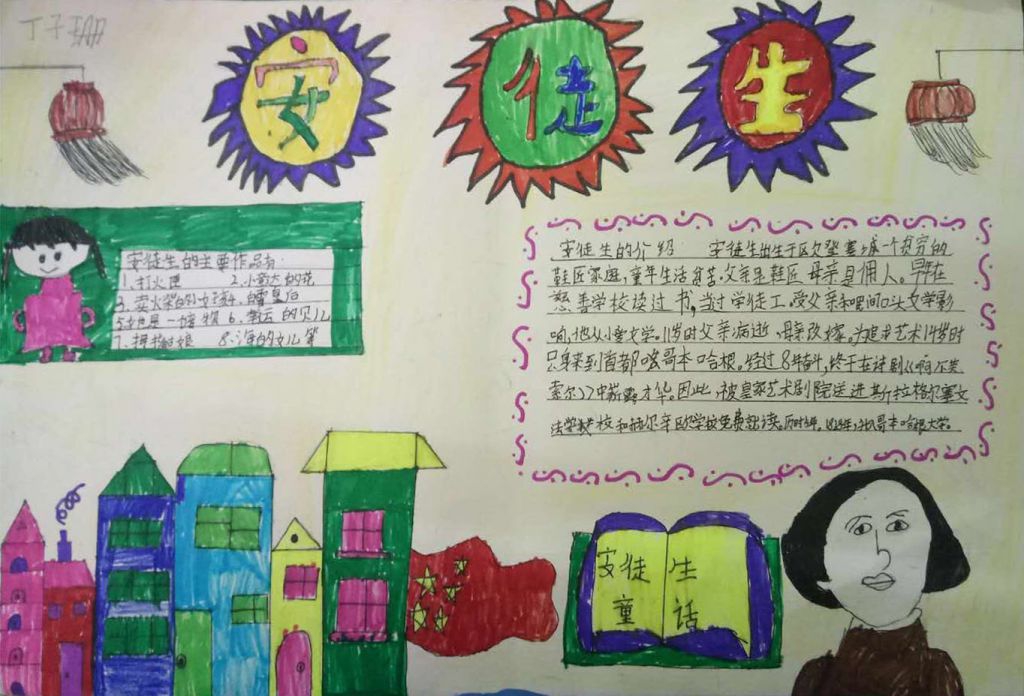 丁子珊
安徒生
安徒生的主要作品有:
1.打火匣 2.小意达的花
3.卖火柴的小女孩4.白雪皇后
5.她是一个废物 6.幸运的贝儿
7.拇指姑娘 8.海的女儿等
安徒生的介绍 安徒生出生于欧登塞城一个贫穷的
鞋匠家庭,童年生活贫苦。父亲是鞋匠,母亲是佣人。早年在
慈善学校读过书,当过学徒工。受父亲和民间口头文学影
响,他从小爱文学。11岁时父亲病逝,母亲改嫁。为追求艺术14岁时
只身来到首都哥本哈根。经过8年奋斗,终于在诗剧《阿尔芙
索尔》中崭露才华。因此,被皇家艺术剧院送进斯拉格尔塞文
法学校和赫尔辛欧学校免费就读。历时5年。1828年,升入哥本哈根大学。
安徒生
童话